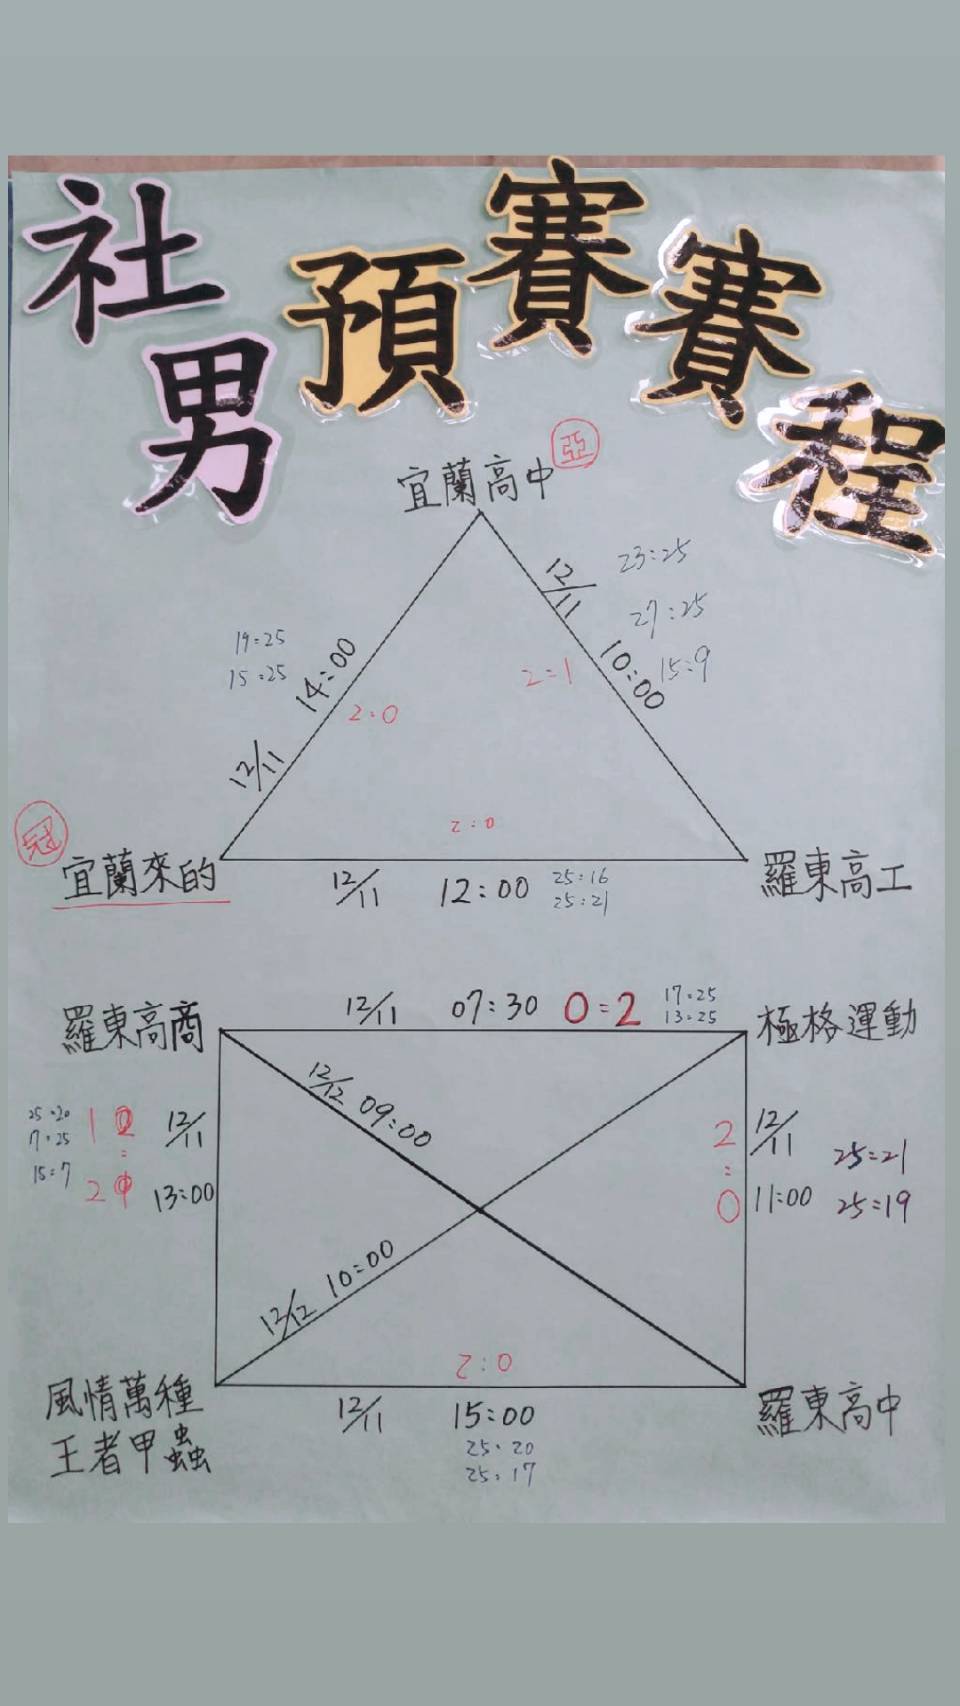 社男預賽賽程
亞
宜蘭高中
12/11 10:00
23:25
27:25
15:9
2:1
19:25
15:25
12/11 14:00
2:0
冠
宜蘭來的
羅東高工
2:0
12/11 12:00
25:16
25:21
羅東高商
極格運動
12/11 07:30 0:2
17:25
13:25
12/12 09:00
25:20
7:25
15:7
12/11
13:00
2
:
0
12/11
11:00
25:21
25:19
12/12 10:00
2:0
風情萬種
王者甲蟲
羅東高中
12/11 15:00
25:20
25:17